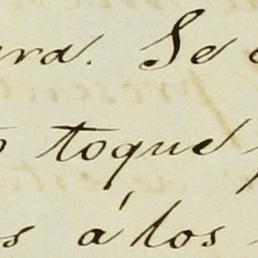 ara. Se
toque
s á los